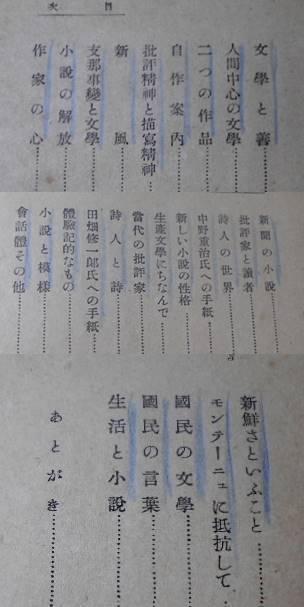 目次
文學と善
人間中心の文學
二つの作品
自作案內
批評精神と描寫精神
新風
支那事變と文學
小說の解放
作家の心
新聞の小說
批評家と讀者
詩人の世界
中野重治氏への手紙
新しい小說の性格
生產文學にちなんで
當代の批評家
詩人と詩
田畑修一郞氏への手紙
體驗記的なもの
小說と模樣
會話體その他
新鮮さといふこと
モンテーニュに抵抗して
國民の文學
國民の言葉
生活と小說
あとがき